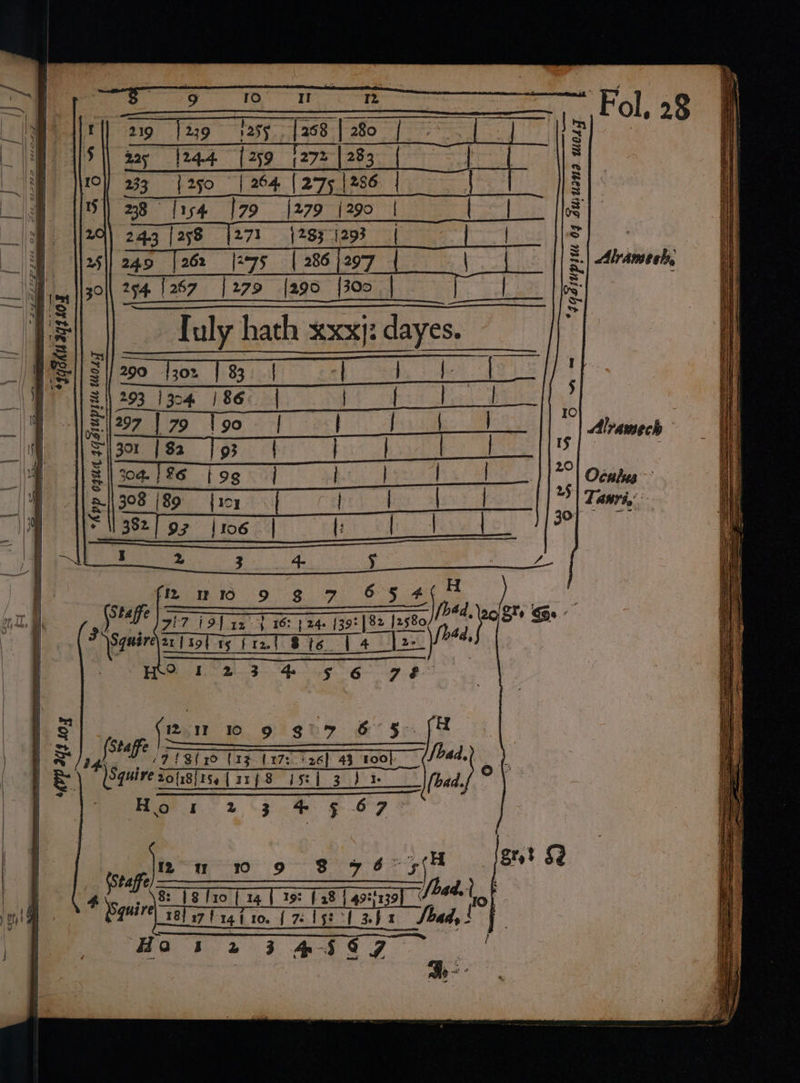 8 9 10 11 12
Fol. 28
1 219 239 255 268 280
5 225 244 259 272 283
10 233 250 264 275 286
15 238 154 79 279 290
20 243 258 271 283 293
25 249 262 275 286 297
30 254 267 279 290 300
From euening to midnight,
Alramech,
Iuly hath xxxj: dayes.
For the nyghte,
From midnight vnto day,
290 302 83 1
293 304 86 5
297 79 90 10
301 82 93 15
304 86 98 20
308 89 101 25
382 93 106 30
Alramech
Oculus
Tauri,
1 2 3 4 5
12 11 10 9 8 7 6 5 4 H
Staffe 7 7 9 12 16: 24. 39: 82 2580 shad.
3 20 gr.
Squire 21 19 15 12. 8 6 4 2 shad,
Ho 1 2 3 4 5 6 7 8
For the daye
12 11 10 9 8 7 6 5 H
Staffe 7 8 10 13 17: 26 43 100 shad.
14 0
Squire 20 18 15. 11 8 5: 3 1 shad.
Ho 1 2 3 4 5 6 7
12 11 10 9 8 7 6 5 H
gr. 1 ♌
Staffe 8: 8 10 14 19: 28 49: 139 shad.
4 10
Squire 18 17 14 10. 7: 5: 3. 1 shad,
Ho 1 2 3 4 5 6 7